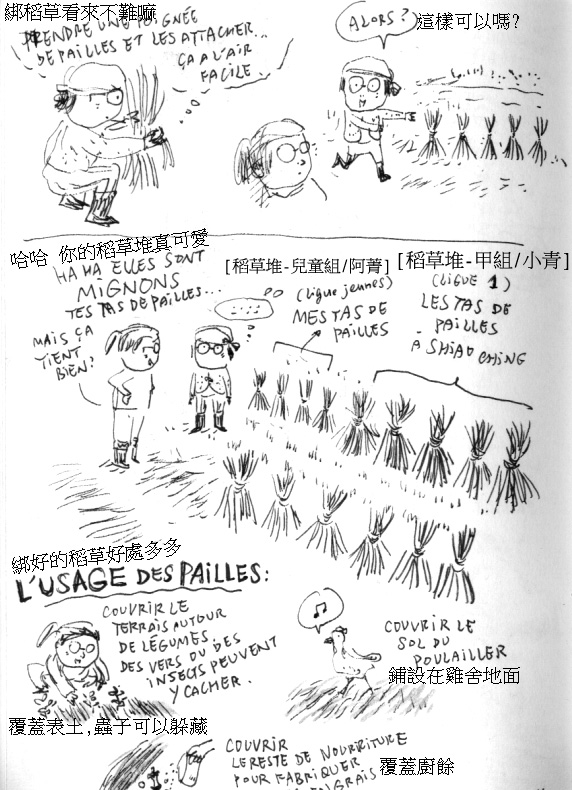 綁稻草看來不難嘛
PRENDRE UNE POIGNÉE
DE PAILLES ET LES ATTACHER...
ÇA A L'AIR
FACILE.
ALORS?
這樣可以嗎?
哈哈 你的稻草堆真可愛
HA HA ELLES SONT
MIGNONS
TES TAS DE PAILLES...
MAIS ÇA
TIENT
BIEN!
[稻草堆-兒童組/阿菁]
(Ligue jeunes)
MES TAS DE
PAILLES
[稻草堆-甲組/小青]
(LIGUE 1)
LES TAS DE
PAILLES
À SHIAO CHING
綁好的稻草好處多多
L'USAGE DES PAILLES:
COUVRIR LE
TERRAIS AUTOUR
DE LÉGUMES.
DES VERS OU DES
INSECTS PEUVENT
Y CACHER.
覆蓋表土,蟲子可以躲藏
COUVRIR LE
SOL DU
POULAILLER
鋪設在雞舍地面
COUVRIR
LE RESTE DE NOURRITURE
POUR FABRIQUER
ENGRAIS
覆蓋廚餘